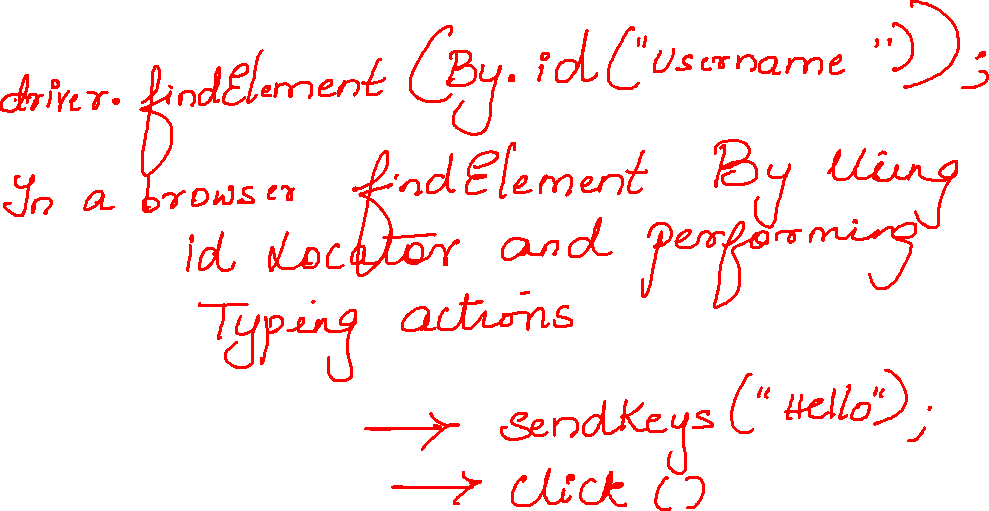 driver. findElement (By. id ("Username "));
In a browser findElement By Using
id Locator and performing
Typing actions
→ sendkeys ("Hello");
→ click ()